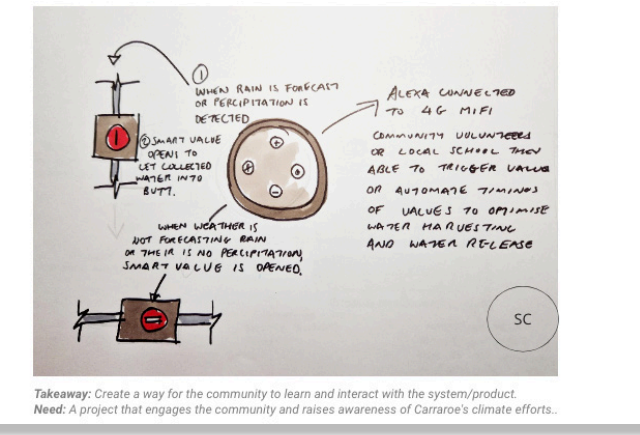 ①
WHEN RAIN IS FORECAST
OR PERCIPITATION IS
DETECTED
② SMART VALUE
OPENS TO
LET COLLECTED
WATER INTO
BUTT.
WHEN WEATHER IS
NOT FORECASTING RAIN
OR THEIR IS NO PERCIPITATION,
SMART VALUE IS OPENED.
ALEXA CONNECTED
TO 4G MIFI
COMMUNITY VOLUNTEERS
OR LOCAL SCHOOL THEN
ABLE TO TRIGGER VALUE
OR AUTOMATE TIMINGS
OF VALUES TO OPTIMISE
WATER HARVESTING
AND WATER RELEASE
SC
Takeaway: Create a way for the community to learn and interact with the system/product.
Need: A project that engages the community and raises awareness of Carraroe's climate efforts..